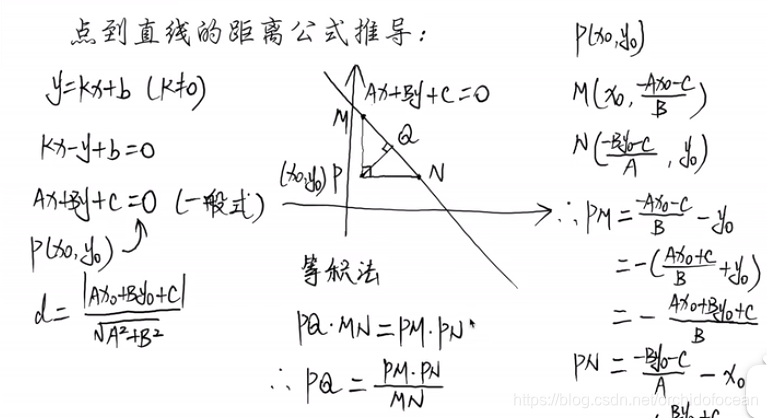 点到直线的距离公式推导：
y=kx+b (k≠0)
kx-y+b=0
Ax+By+C=0 (一般式)
P(x₀,y₀)
d=|Ax₀+By₀+C|/√A²+B²
Ax+By+C=0
M
Q
(x₀,y₀) P
N
等积法
PQ·MN=PM·PN
∴ PQ=PM·PN/MN
P(x₀,y₀)
M(x₀,-Ax₀-C/B)
N(-By₀-C/A,y₀)
∴PM=-Ax₀-C/B-y₀
=-(Ax₀+C/B+y₀)
=-Ax₀+By₀+C/B
PN=-By₀-C/A-x₀
By₀+C
https://blog.csdn.net/orchidofocean